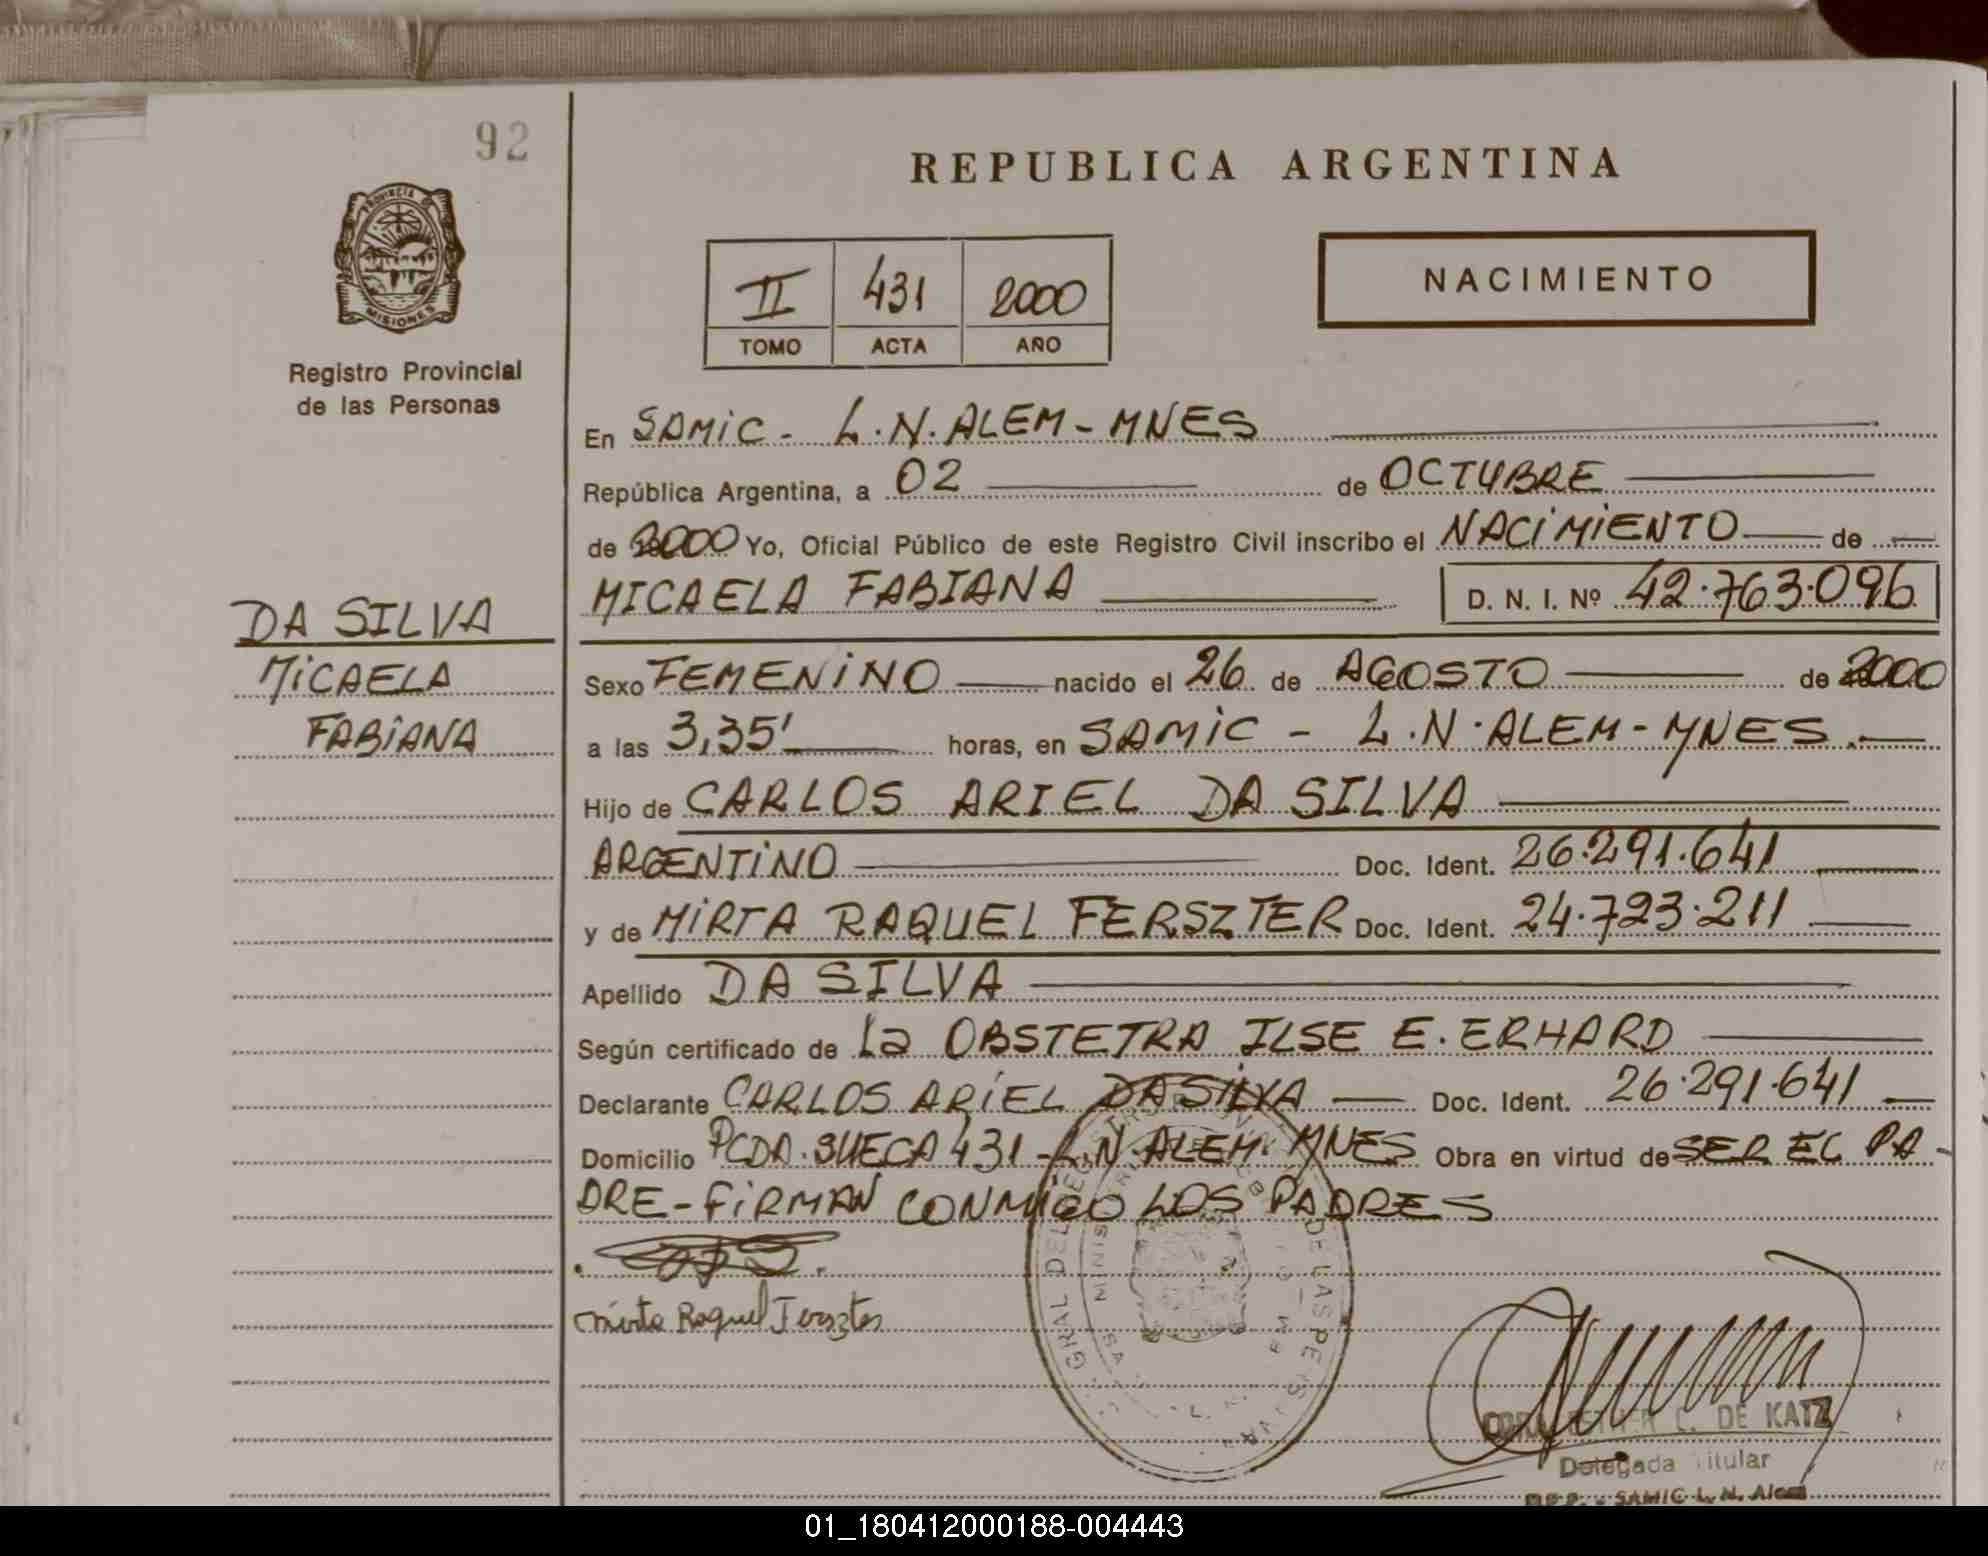 92
REPUBLICA ARGENTINA
PROVINCIA DE
MISIONES
Registro Provincial
de las Personas
II 431 2000
TOMO ACTA AÑO
NACIMIENTO
En SAMIC - L.N. ALEM - MNES
República Argentina, a 02 de OCTUBRE
de 2000 Yo, Oficial Público de este Registro Civil inscribo el NACIMIENTO de
MICAELA FABIANA D. N. I. Nº 42.763.096
DA SILVA
MICAELA
FABIANA
Sexo FEMENINO nacido el 26 de AGOSTO de 2000
a las 3,35' horas, en SAMIC - L.N. ALEM - MNES.
Hijo de CARLOS ARIEL DA SILVA
ARGENTINO Doc. Ident. 26.291.641
y de MIRTA RAQUEL FERSZTER Doc. Ident. 24.723.211
Apellido DA SILVA
Según certificado de La OBSTETRA ILSE E. ERHARD
Declarante CARLOS ARIEL DA SILVA Doc. Ident. 26.291.641
Domicilio PCDA. SUECA 431 - L.N. ALEM. MNES Obra en virtud de SER EL PA-
DRE - FIRMAN CONMIGO LOS PADRES
Mirta Raquel Ferszter
GRAL DEL DE LAS PE
DE KATZ
Delegada Titular
SAMIC L. N. Alem
01_180412000188-004443